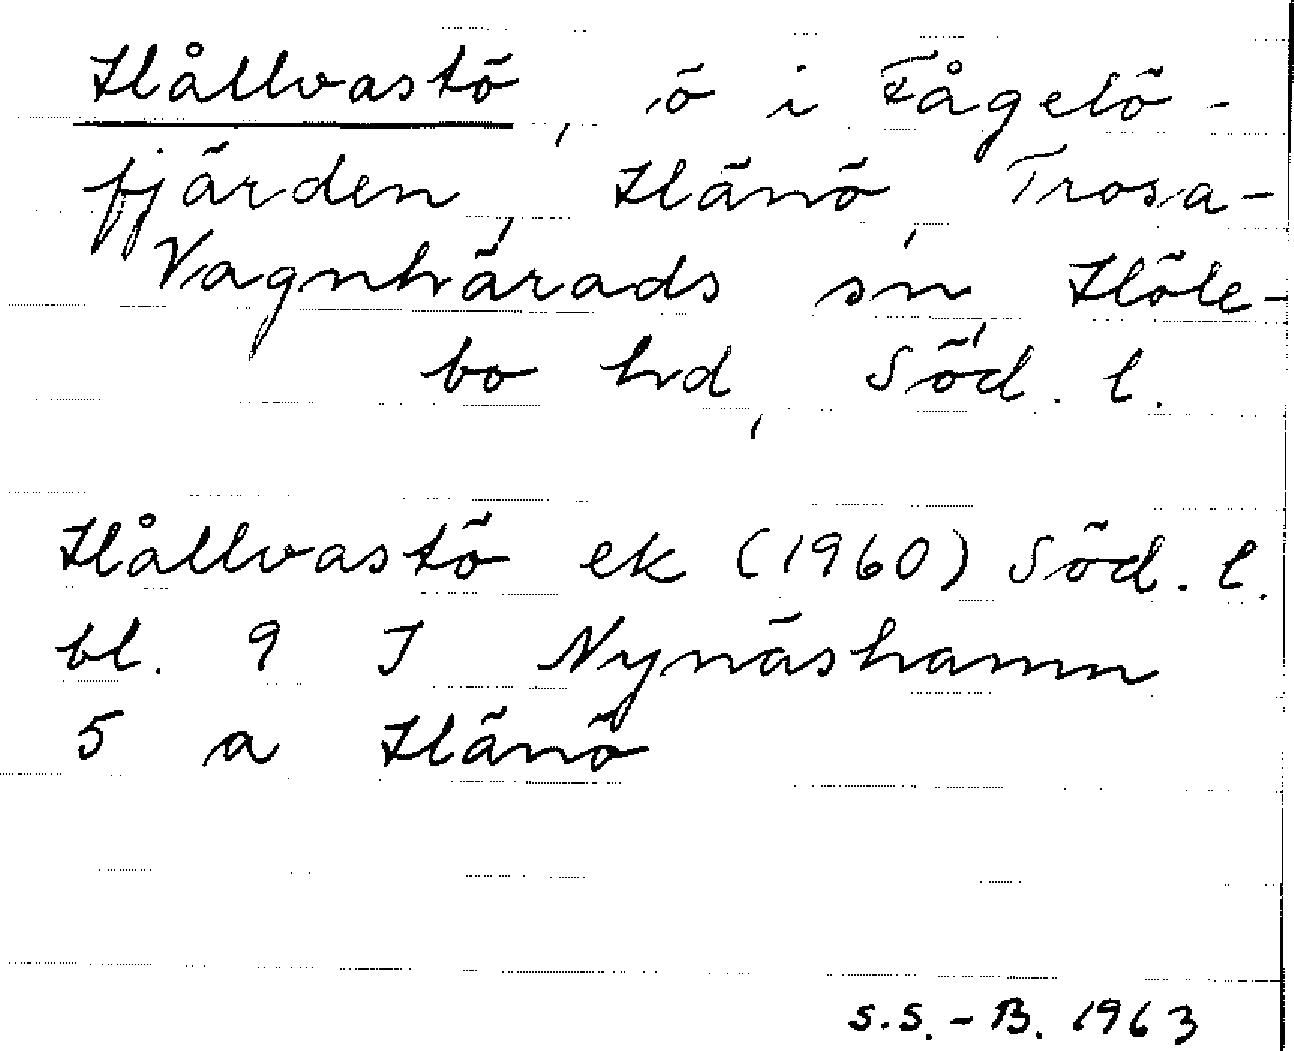 Hållvastö, ö i Fågelö-
fjärden, Hänö, Trosa-
Vagnhärads sn, Höle-
bo hd, Söd. l.
Hållvastö ek (1960) Söd. l.
bl. 9 I Nynäshamn
5 a Hänö
S.S.-B. 1963